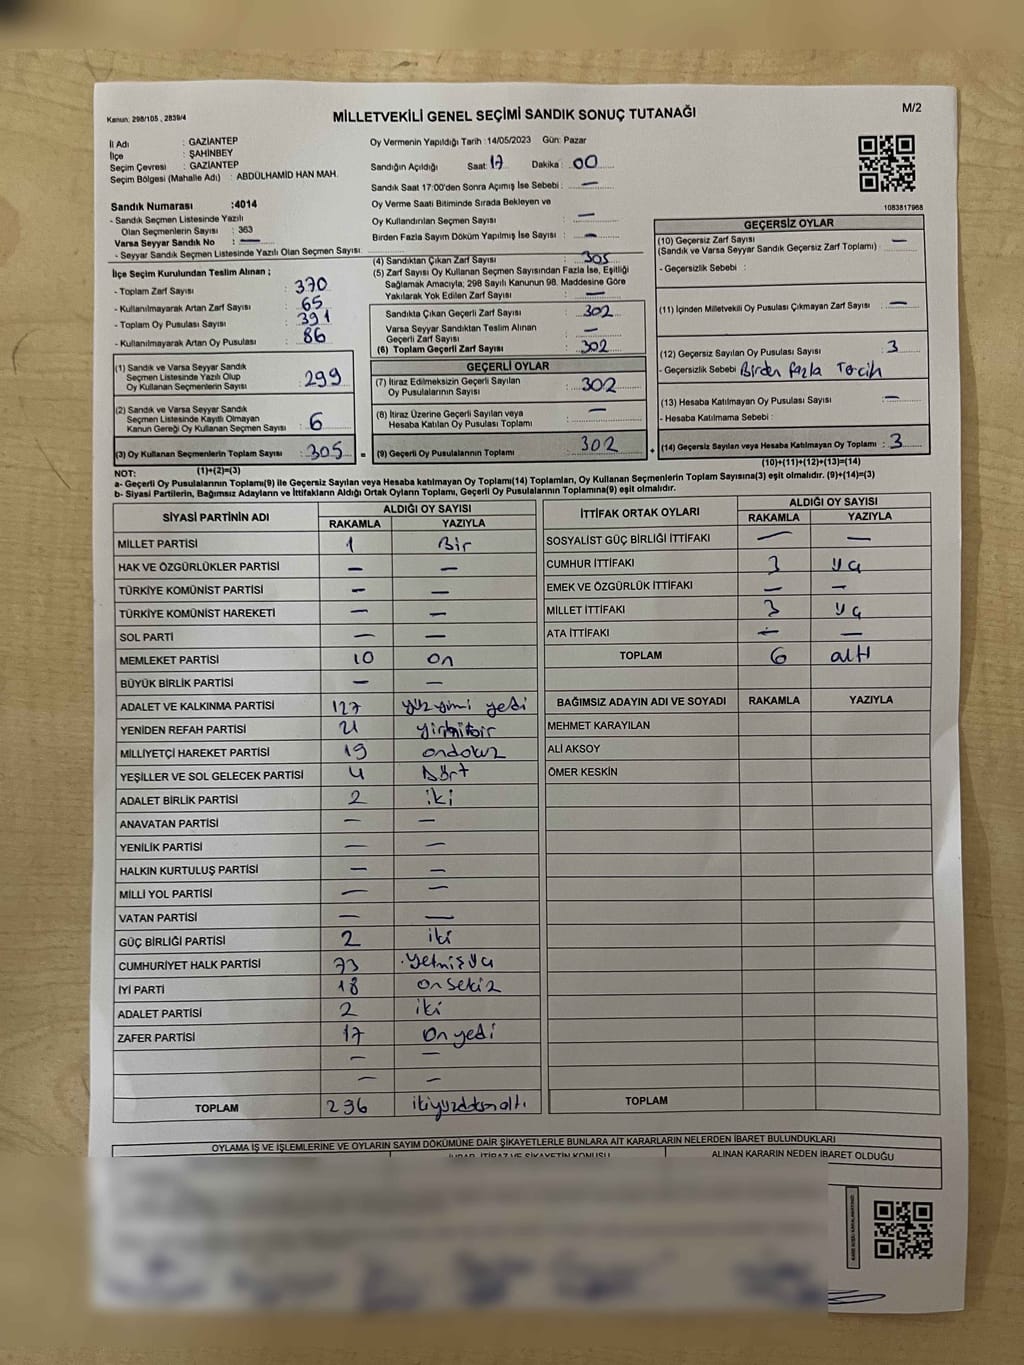 M/2
Kanun: 298/105 , 2839/4
MİLLETVEKİLİ GENEL SEÇİMİ SANDIK SONUÇ TUTANAĞI
İl Adı : GAZİANTEP
İlçe : ŞAHİNBEY
Seçim Çevresi : GAZİANTEP
Seçim Bölgesi (Mahalle Adı) : ABDÜLHAMİD HAN MAH.
Sandık Numarası :4014
- Sandık Seçmen Listesinde Yazılı
Olan Seçmenlerin Sayısı : 363
Varsa Seyyar Sandık No : —
- Seyyar Sandık Seçmen Listesinde Yazılı Olan Seçmen Sayısı
Oy Vermenin Yapıldığı Tarih :14/05/2023 Gün: Pazar
Sandığın Açıldığı Saat: 17 Dakika : 00
Sandık Saat 17:00'den Sonra Açımış İse Sebebi : —
Oy Verme Saati Bitiminde Sırada Bekleyen ve
Oy Kullandırılan Seçmen Sayısı : —
Birden Fazla Sayım Döküm Yapılmış İse Sayısı : —
1083817968
İlçe Seçim Kurulundan Teslim Alınan ;
- Toplam Zarf Sayısı : 370
- Kullanılmayarak Artan Zarf Sayısı : 65
- Toplam Oy Pusulası Sayısı : 391
- Kullanılmayarak Artan Oy Pusulası : 86
(1) Sandık ve Varsa Seyyar Sandık
Seçmen Listesinde Yazılı Olup
Oy Kullanan Seçmenlerin Sayısı : 299
(2) Sandık ve Varsa Seyyar Sandık
Seçmen Listesinde Kayıtlı Olmayan
Kanun Gereği Oy Kullanan Seçmen Sayısı : 6
(3) Oy Kullanan Seçmenlerin Toplam Sayısı : 305
(1)+(2)=(3)
(4) Sandıktan Çıkan Zarf Sayısı : 305
(5) Zarf Sayısı Oy Kullanan Seçmen Sayısından Fazla İse, Eşitliği
Sağlamak Amacıyla; 298 Sayılı Kanunun 98. Maddesine Göre
Yakılarak Yok Edilen Zarf Sayısı : —
Sandıkta Çıkan Geçerli Zarf Sayısı : 302
Varsa Seyyar Sandıktan Teslim Alınan
Geçerli Zarf Sayısı : —
(6) Toplam Geçerli Zarf Sayısı : 302
GEÇERLİ OYLAR
(7) İtiraz Edilmeksizin Geçerli Sayılan
Oy Pusulalarının Sayısı : 302
(8) İtiraz Üzerine Geçerli Sayılan veya
Hesaba Katılan Oy Pusulası Toplamı : —
= (9) Geçerli Oy Pusulalarının Toplamı : 302
GEÇERSİZ OYLAR
(10) Geçersiz Zarf Sayısı
(Sandık ve Varsa Seyyar Sandık Geçersiz Zarf Toplamı) : —
- Geçersizlik Sebebi :
(11) İçinden Milletvekili Oy Pusulası Çıkmayan Zarf Sayısı : —
(12) Geçersiz Sayılan Oy Pusulası Sayısı : 3
- Geçersizlik Sebebi Birden fazla Tercih
(13) Hesaba Katılmayan Oy Pusulası Sayısı : —
- Hesaba Katılmama Sebebi :
+ (14) Geçersiz Sayılan veya Hesaba Katılmayan Oy Toplamı : 3
(10)+(11)+(12)+(13)=(14)
NOT:
a- Geçerli Oy Pusulalarının Toplamı(9) ile Geçersiz Sayılan veya Hesaba Katılmayan Oy Toplamı(14) Toplamları, Oy Kullanan Seçmenlerin Toplam Sayısına(3) eşit olmalıdır. (9)+(14)=(3)
b- Siyasi Partilerin, Bağımsız Adayların ve İttifakların Aldığı Ortak Oyların Toplamı, Geçerli Oy Pusulalarının Toplamına(9) eşit olmalıdır.
SİYASİ PARTİNİN ADI ALDIĞI OY SAYISI
RAKAMLA YAZIYLA
MİLLET PARTİSİ 1 Bir
HAK VE ÖZGÜRLÜKLER PARTİSİ — —
TÜRKİYE KOMÜNİST PARTİSİ — —
TÜRKİYE KOMÜNİST HAREKETİ — —
SOL PARTİ — —
MEMLEKET PARTİSİ 10 on
BÜYÜK BİRLİK PARTİSİ — —
ADALET VE KALKINMA PARTİSİ 127 yüzyirmi yedi
YENİDEN REFAH PARTİSİ 21 yirmibir
MİLLİYETÇİ HAREKET PARTİSİ 19 ondokuz
YEŞİLLER VE SOL GELECEK PARTİSİ 4 Dört
ADALET BİRLİK PARTİSİ 2 iki
ANAVATAN PARTİSİ — —
YENİLİK PARTİSİ — —
HALKIN KURTULUŞ PARTİSİ — —
MİLLİ YOL PARTİSİ — —
VATAN PARTİSİ — —
GÜÇ BİRLİĞİ PARTİSİ 2 iki
CUMHURİYET HALK PARTİSİ 73 yetmişüç
İYİ PARTİ 18 onsekiz
ADALET PARTİSİ 2 iki
ZAFER PARTİSİ 17 onyedi
— —
— —
TOPLAM 296 ikiyüzdoksanaltı
İTTİFAK ORTAK OYLARI ALDIĞI OY SAYISI
RAKAMLA YAZIYLA
SOSYALİST GÜÇ BİRLİĞİ İTTİFAKI — —
CUMHUR İTTİFAKI 3 üç
EMEK VE ÖZGÜRLÜK İTTİFAKI — —
MİLLET İTTİFAKI 3 üç
ATA İTTİFAKI — —
TOPLAM 6 altı
BAĞIMSIZ ADAYIN ADI VE SOYADI RAKAMLA YAZIYLA
MEHMET KARAYILAN
ALİ AKSOY
ÖMER KESKİN
TOPLAM
OYLAMA İŞ VE İŞLEMLERİNE VE OYLARIN SAYIM DÖKÜMÜNE DAİR ŞİKAYETLERLE BUNLARA AİT KARARLARIN NELERDEN İBARET BULUNDUKLARI
İTİRAZ VE ŞİKAYETİN KONUSU ALINAN KARARIN NEDEN İBARET OLDUĞU